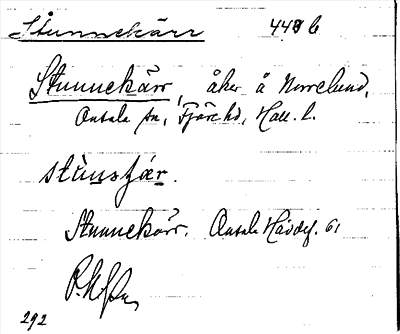 Stunnekärr 443 b
Stunnekärr, åker å Norrelund,
Onsala sn, Fjäre hd, Hall. l.
Stunnekärr. Onsala Hävdef. 61
292